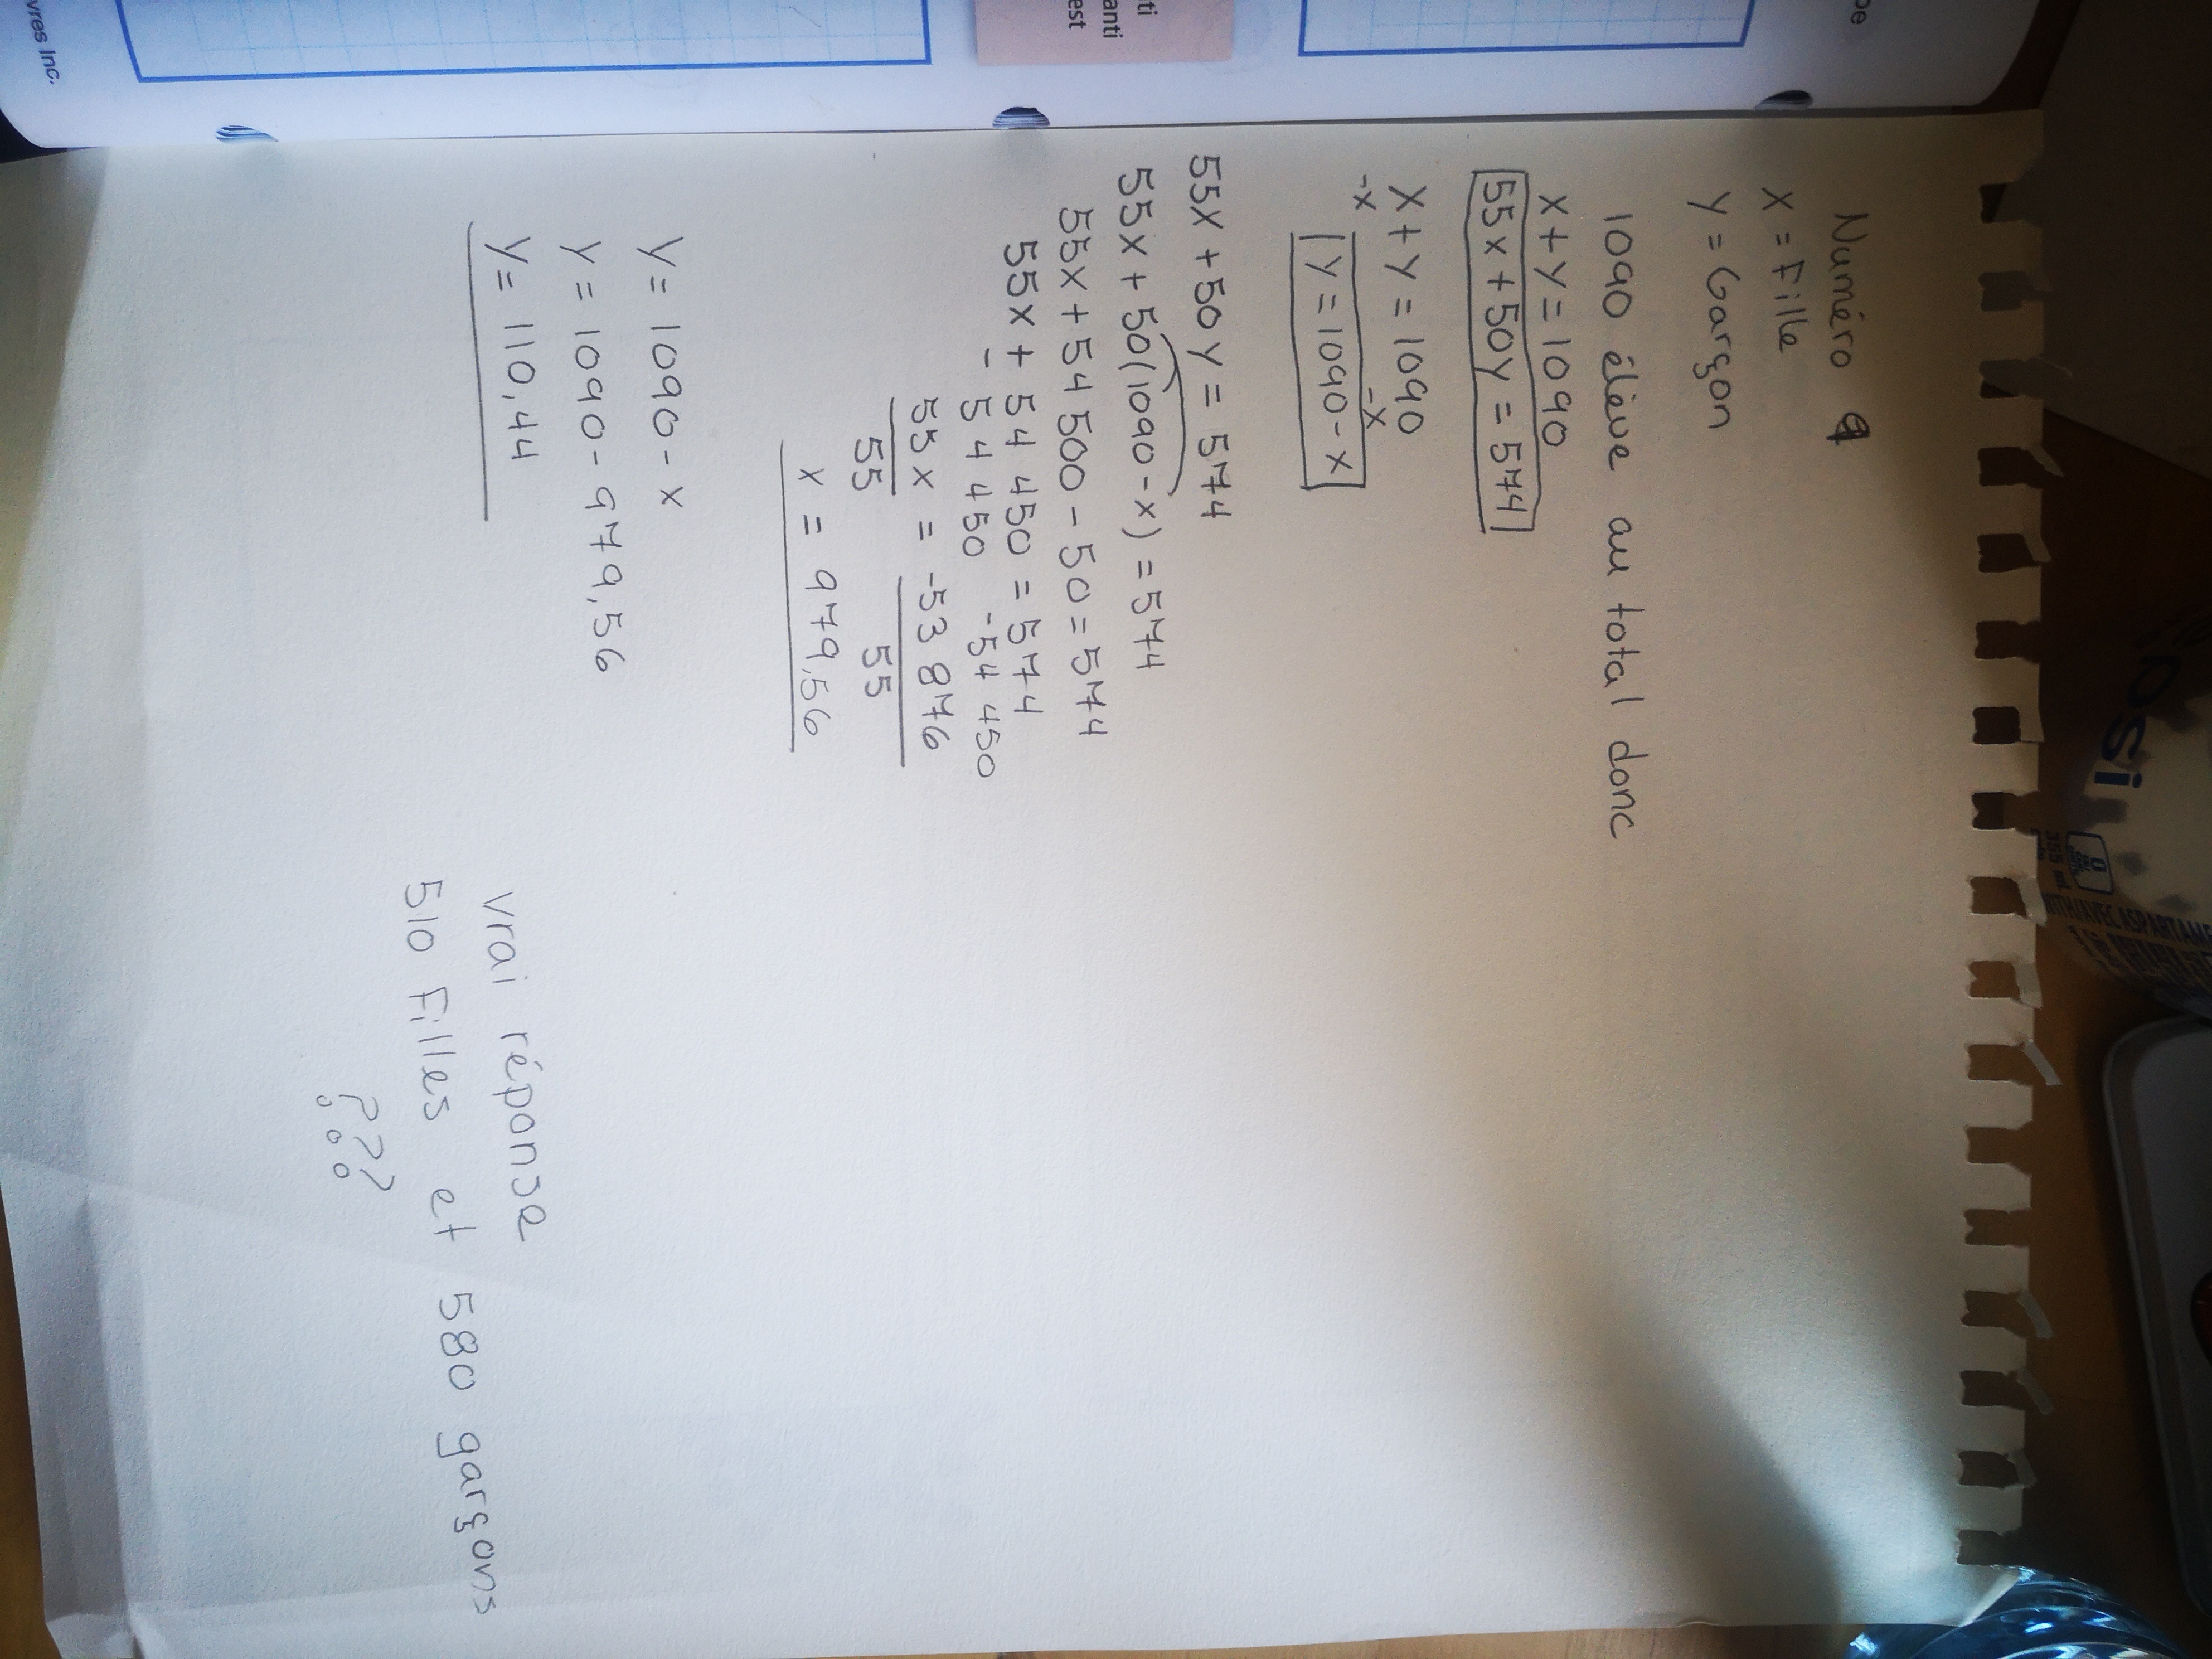 Numéro 9
x = Fille
y = Garçon
1090 élève au total donc
x + y = 1090
55x + 50y = 574
x + y = 1090
-x -x
y = 1090 - x
55x + 50y = 574
55x + 50(1090 - x) = 574
55x + 54 500 - 50 = 574
55x + 54 450 = 574
- 54 450 -54 450
55x = -53 876
55 55
x = 979,56
y = 1090 - x
y = 1090 - 979,56
y = 110,44
vrai réponse
510 Filles et 580 garçons
???
vres Inc.
ti
anti
est
psi
355 mL
WITH/AVEC ASPARTAME